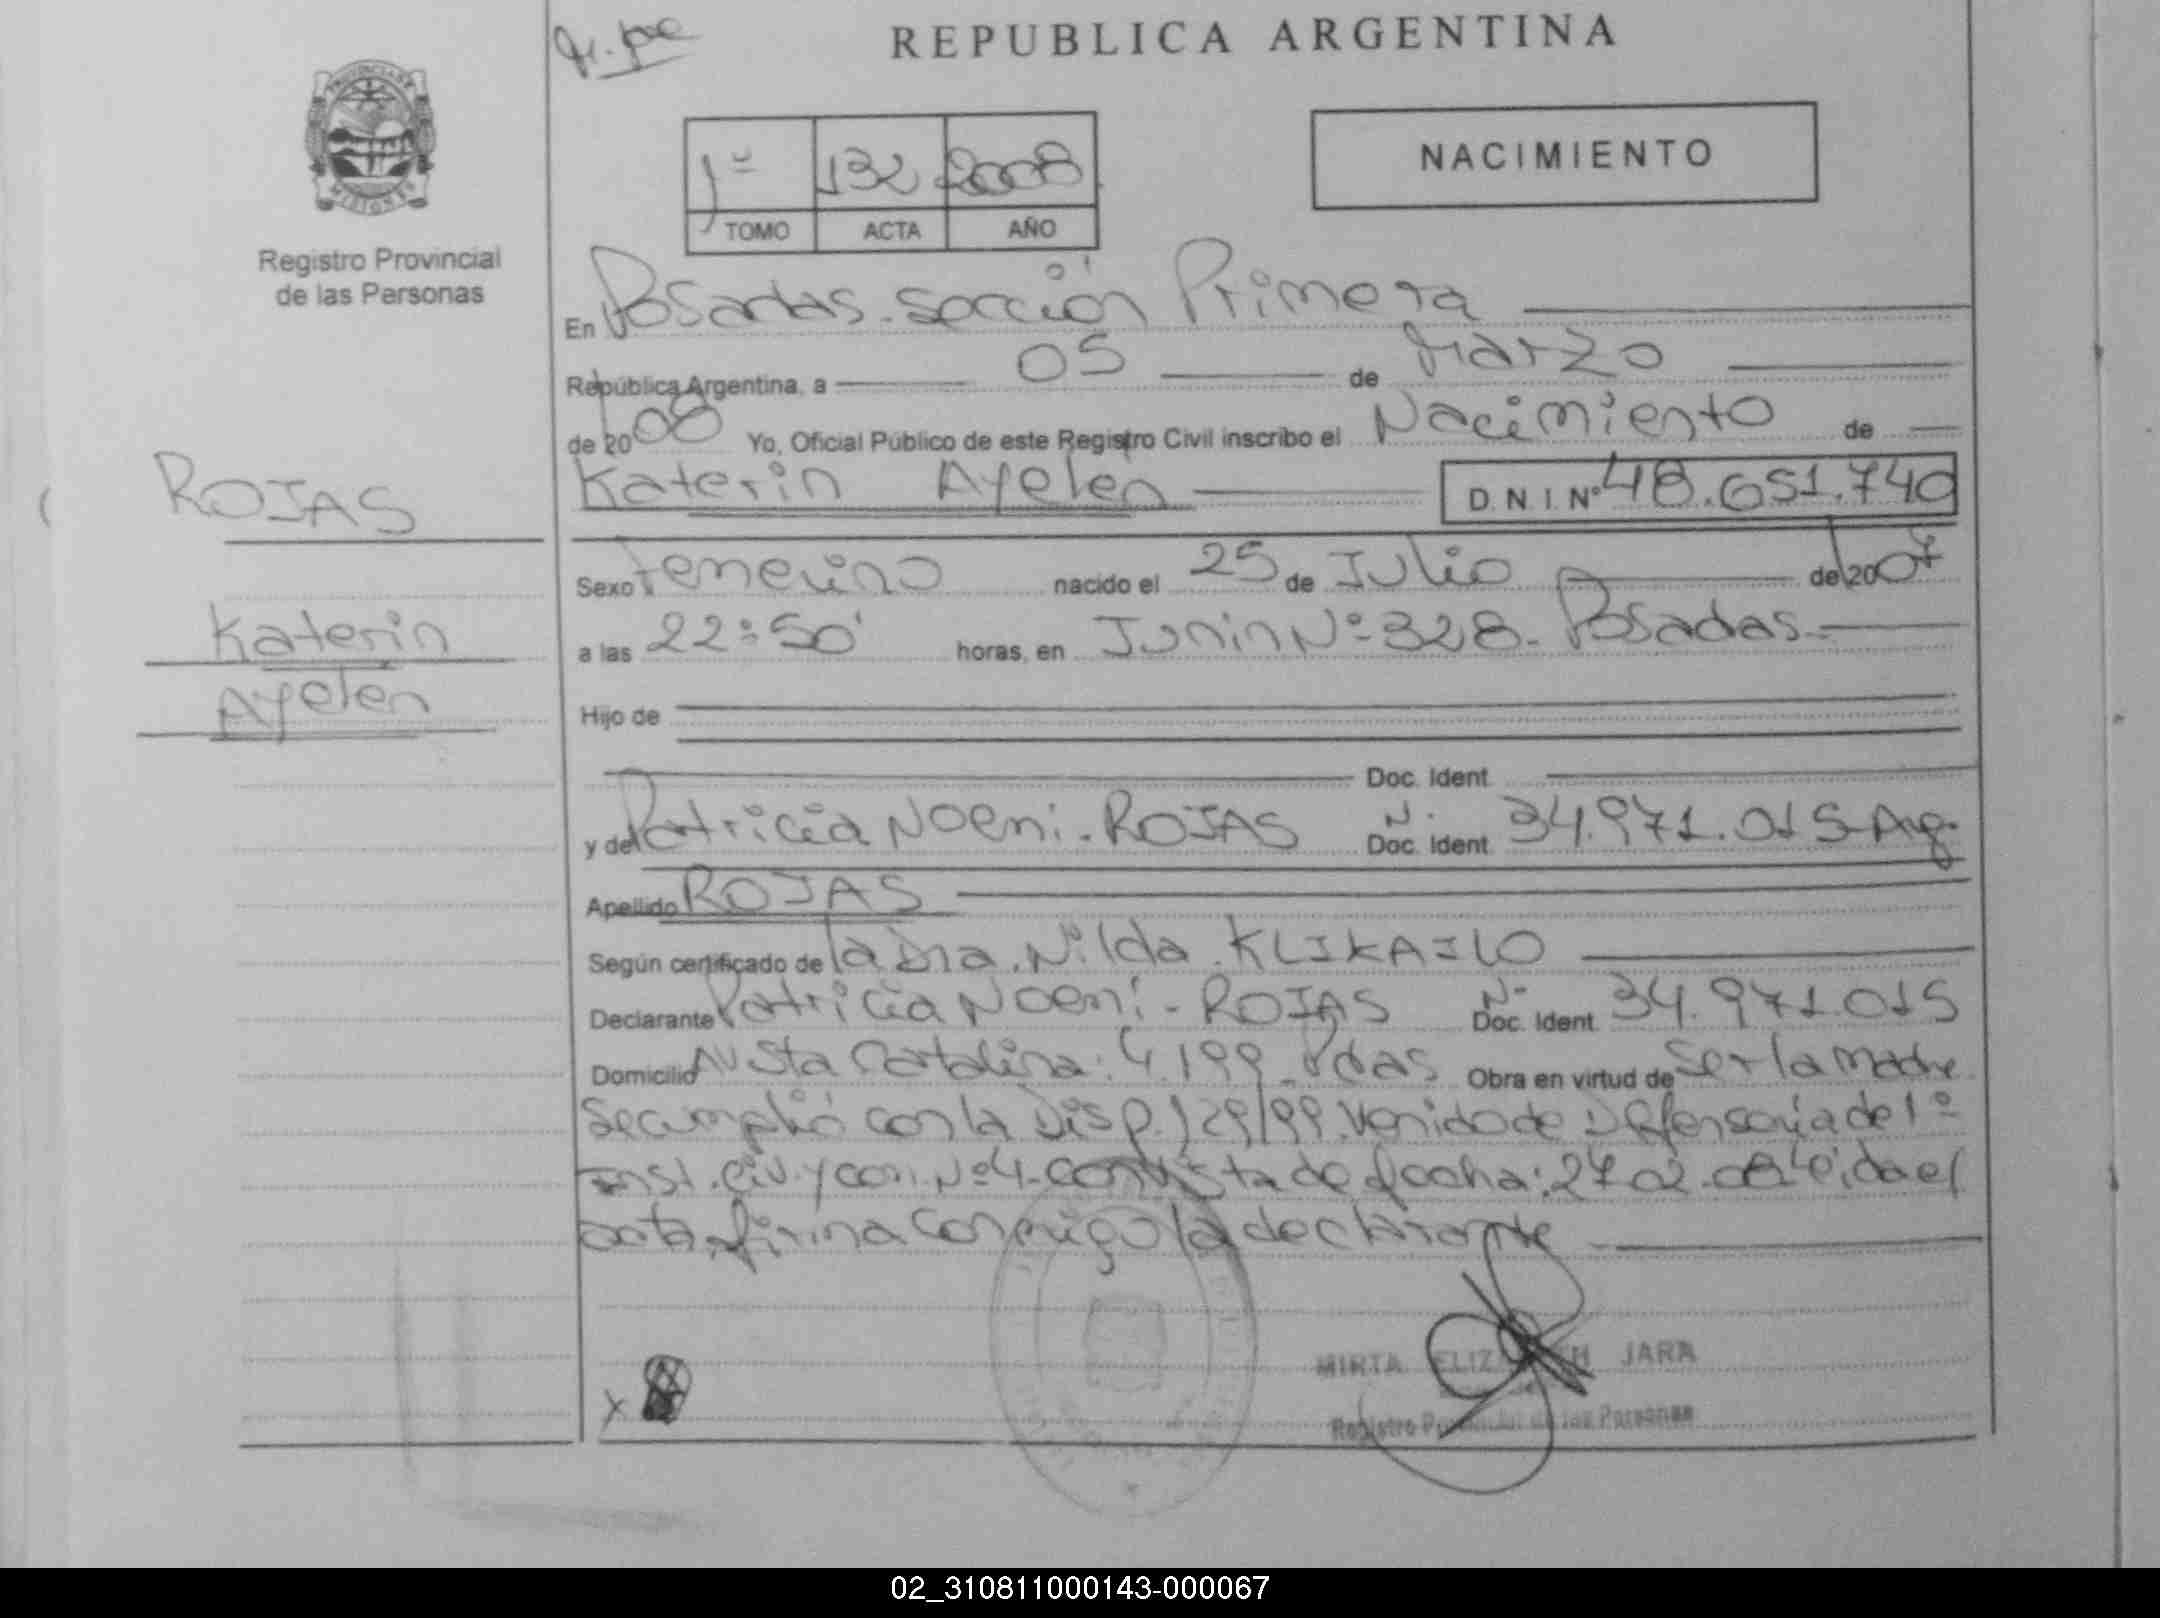 REPUBLICA ARGENTINA
PROVINCIA DE
MISIONES
Registro Provincial
de las Personas
1º 132 2008
TOMO ACTA AÑO
NACIMIENTO
En Posadas. Sección Primera
República Argentina, a 05 de Marzo
de 2008 Yo, Oficial Público de este Registro Civil inscribo el Nacimiento de
Katerin Ayelén D.N.I. Nº 48.651.740
ROJAS
Katerin
Ayelén
Sexo Femenino nacido el 25 de Julio de 2007
a las 22:50' horas, en Junin Nº 328. Posadas
Hijo de
Doc. Ident.
y de Patricia Noemi. ROJAS Doc. Ident. N. 34.971.015 Arg.
Apellido ROJAS
Según certificado de la Dra. Nilda. KLIKAILO
Declarante Patricia Noemi - ROJAS Doc. Ident. N. 34.971.015
Domicilio Av Sta Catalina: 4.199 Pdas Obra en virtud de Ser la madre
Se cumplió con la Disp. 129/99. Venido de Defensoría de 1º
Inst. Civ. y Com. Nº 4. con vista de fecha: 27.02.08 Leida el
acta, firma conmigo la declarante
X
MIRTA ELIZABETH JARA
Registro Provincial de las Personas
02_310811000143-000067